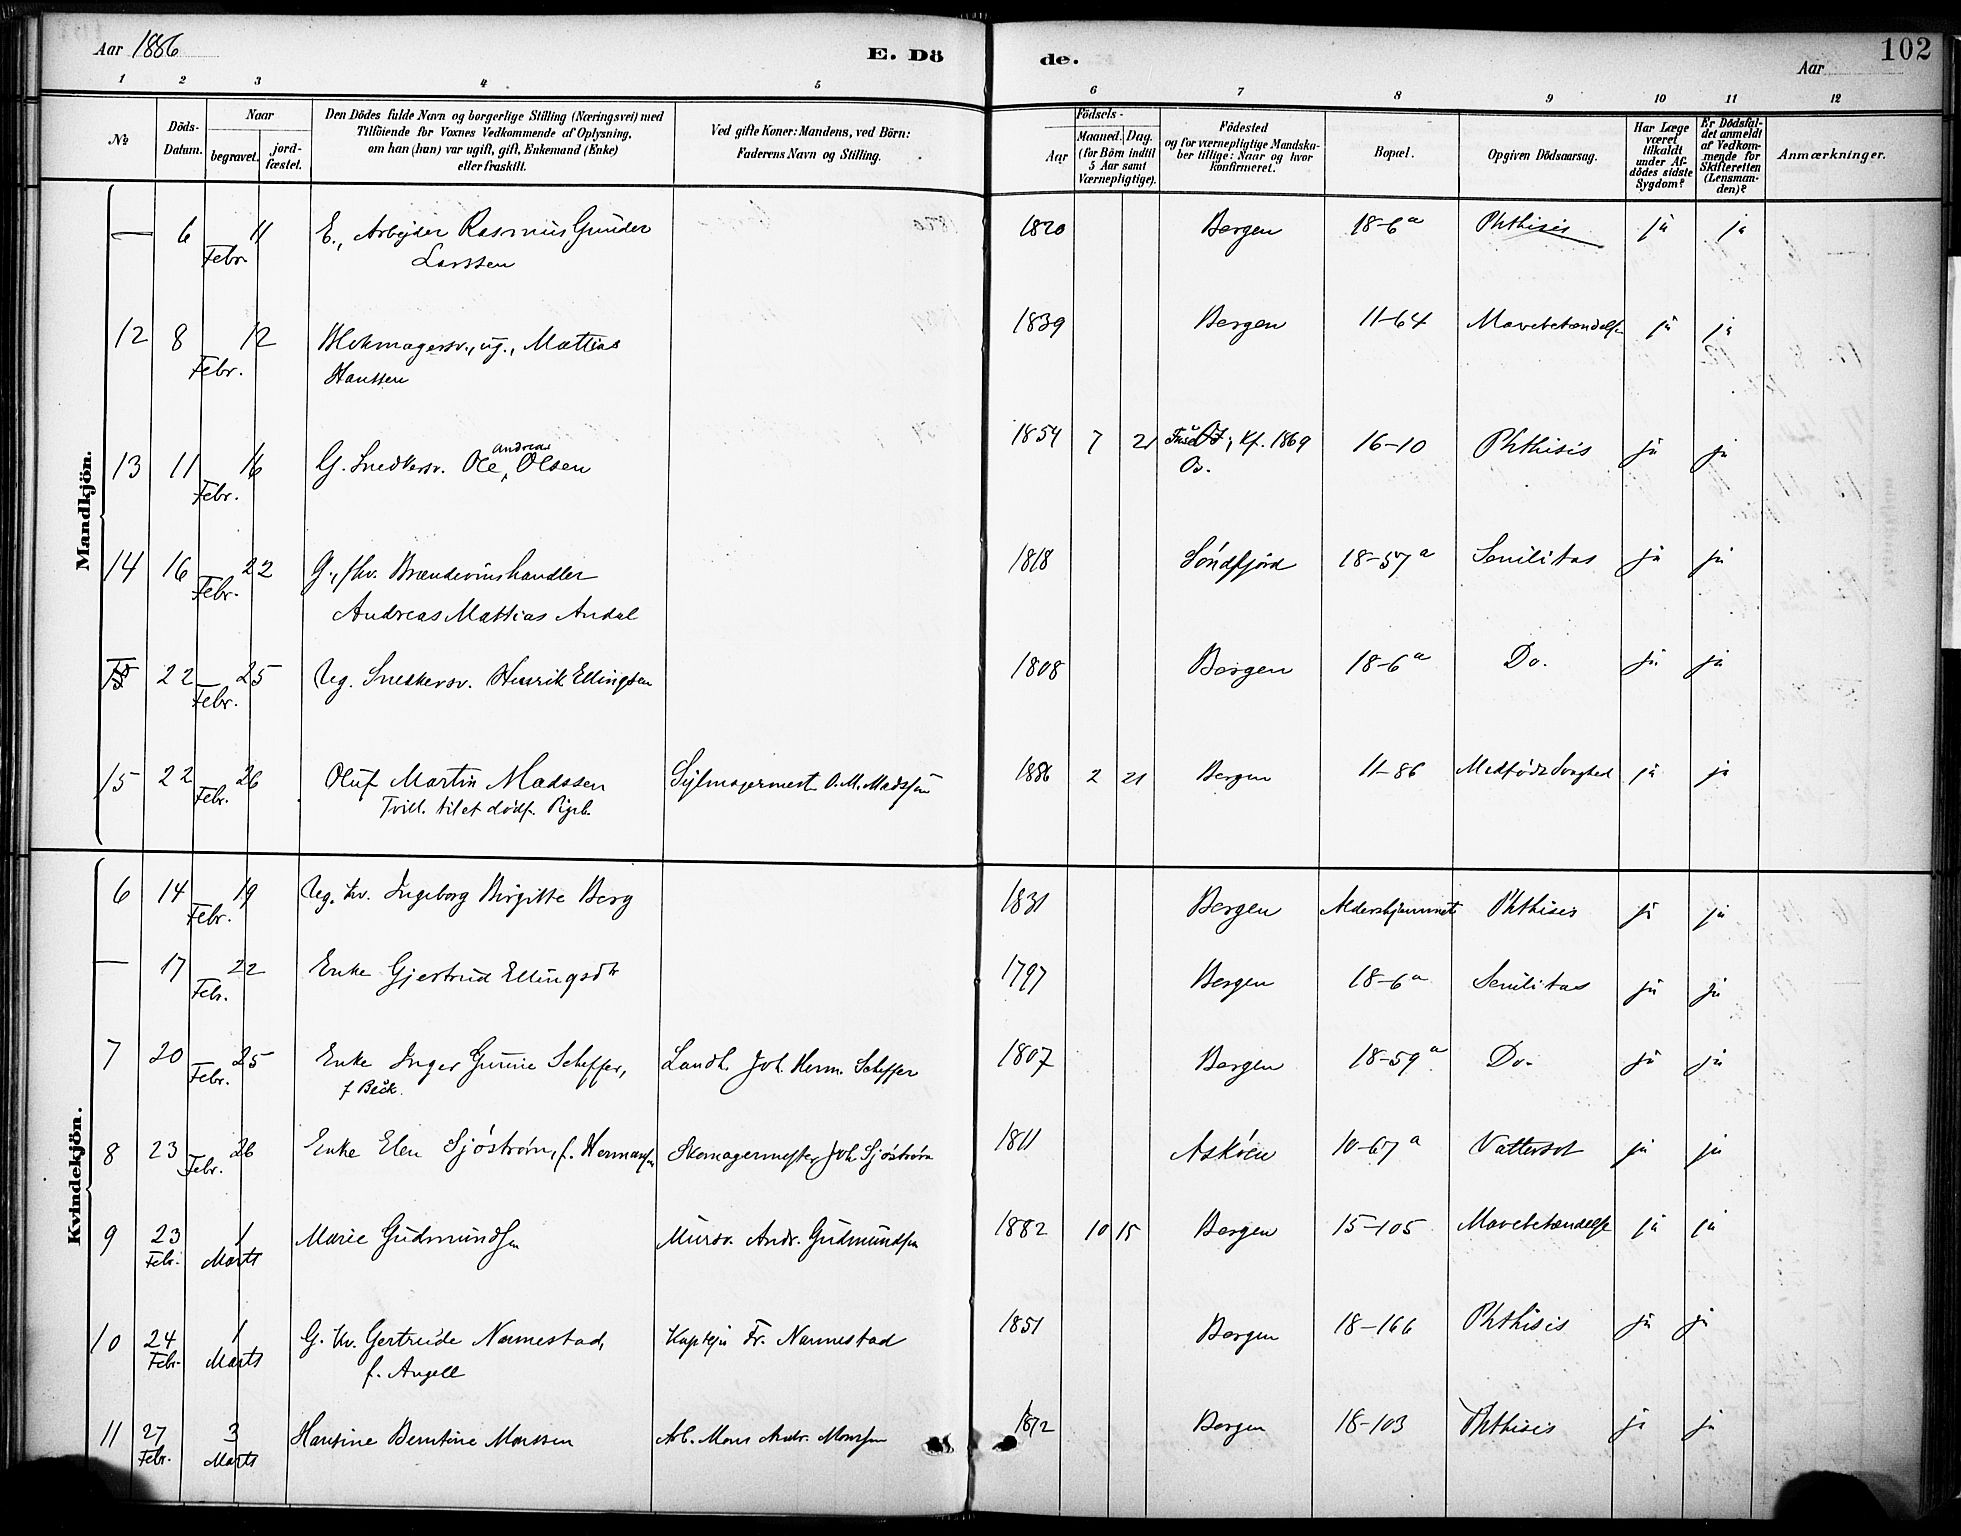 Aar 1886
E. Dö
de.
Aar
102
1 2 3 4 5 6 7 8 9 10 11 12
№
Döds-
Datum.
Naar
begravet.
jord-
fæstet.
Den Dödes fulde Navn og borgerlige Stilling (Næringsvei) med
Tilföiende for Voxnes Vedkommende af Oplysning,
om han (hun) var ugift, gift, Enkemand (Enke)
eller fraskilt.
Ved gifte Koner: Mandens, ved Börn:
Faderens Navn og Stilling.
Födsels-
Aar
Maaned. Dag.
(for Börn indtil
5 Aar samt
Værnepligtige).
Födested
og for værnepligtige Mandska-
ber tillige: Naar og hvor
konfirmeret.
Bopæl.
Opgiven Dödsaarsag.
Har Læge
været
tilkaldt
under Af-
dödes sidste
Sygdom?
Er Dödsfal-
det anmeldt
af Vedkom-
mende for
Skifteretten
(Lensman-
den)?
Anmærkninger.
Mandkjön.
— 6 11 Febr. E., Arbejder Rasmus Gunder 1820 Bergen 18-6a Phthisis ja ja
Larssen
12 8 12 Febr. Blokmagersv., ug., Mattias 1839 Bergen 11-64 Mavebetændelse ja ja
Hanssen
13 11 16 Febr. G. Snedkersv. Ole Andreas Olsen 1854 7 21 Kf. 1869 16-10 Phthisis ja ja
14 16 22 Febr. G., fhv. Brændevinshandler 1818 Söndfjord 18-57a Senilitas ja ja
Andreas Mattias Andal
22 25 Febr. Ug. Snedkersv. Henrik Ellingsen 1808 Bergen 18-6a Do. ja ja
15 22 26 Febr. Oluf Martin Madssen Sejlmagermest. O. M. Madssen 1886 2 21 Bergen 11-86 Medfødt Svaghed ja ja
Tvill. til et dødf. Pigeb.
Kvindekjön.
6 14 19 Febr. Ug. Kv. Ingeborg Birgitte Berg 1831 Bergen Aldershjemmet Phthisis ja ja
— 17 22 Febr. Enke Gjertrud Ellingsdtr 1797 Bergen 18-6a Senilitas ja ja
7 20 25 Febr. Enke Inger Gurine Scheffer, Landh. Joh. Herm. Scheffer 1807 Bergen 18-59a Do. ja ja
f Bäck.
8 23 26 Febr. Enke Elen Sjöström, f. Hermansen Skomagermester Joh Sjöström 1811 Askøen 10-67a Vattersot ja ja
9 23 Febr. 1 Marts Marie Gudmundsen Mursv. Andr. Gudmundsen 1882 10 15 Bergen 15-105 Mavebetændelse ja ja
10 24 Febr. 1 Marts G. Kv. Gertrude Nannestad, Kaptejn Fr. Nannestad 1851 Bergen 18-166 Phthisis ja ja
f. Angell
11 27 Febr. 3 Marts Hansine Berntine Monssen Arb. Mons Andr. Monssen 1872 Bergen 18-103 Phthisis ja ja